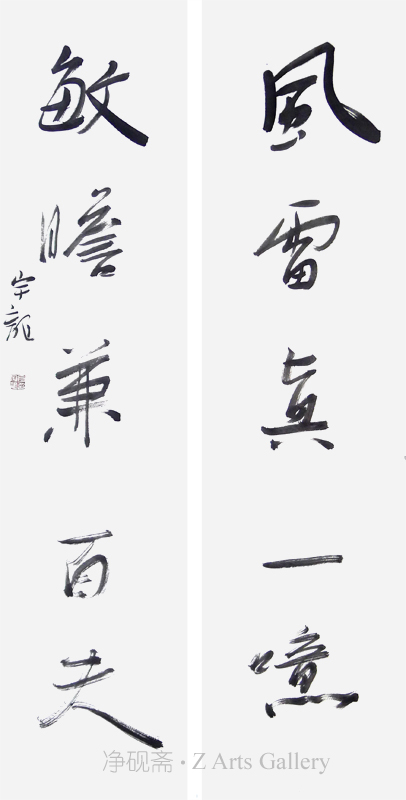 風雷真一噫
敏贍兼百夫
宇龍
净砚斋·Z Arts Gallery